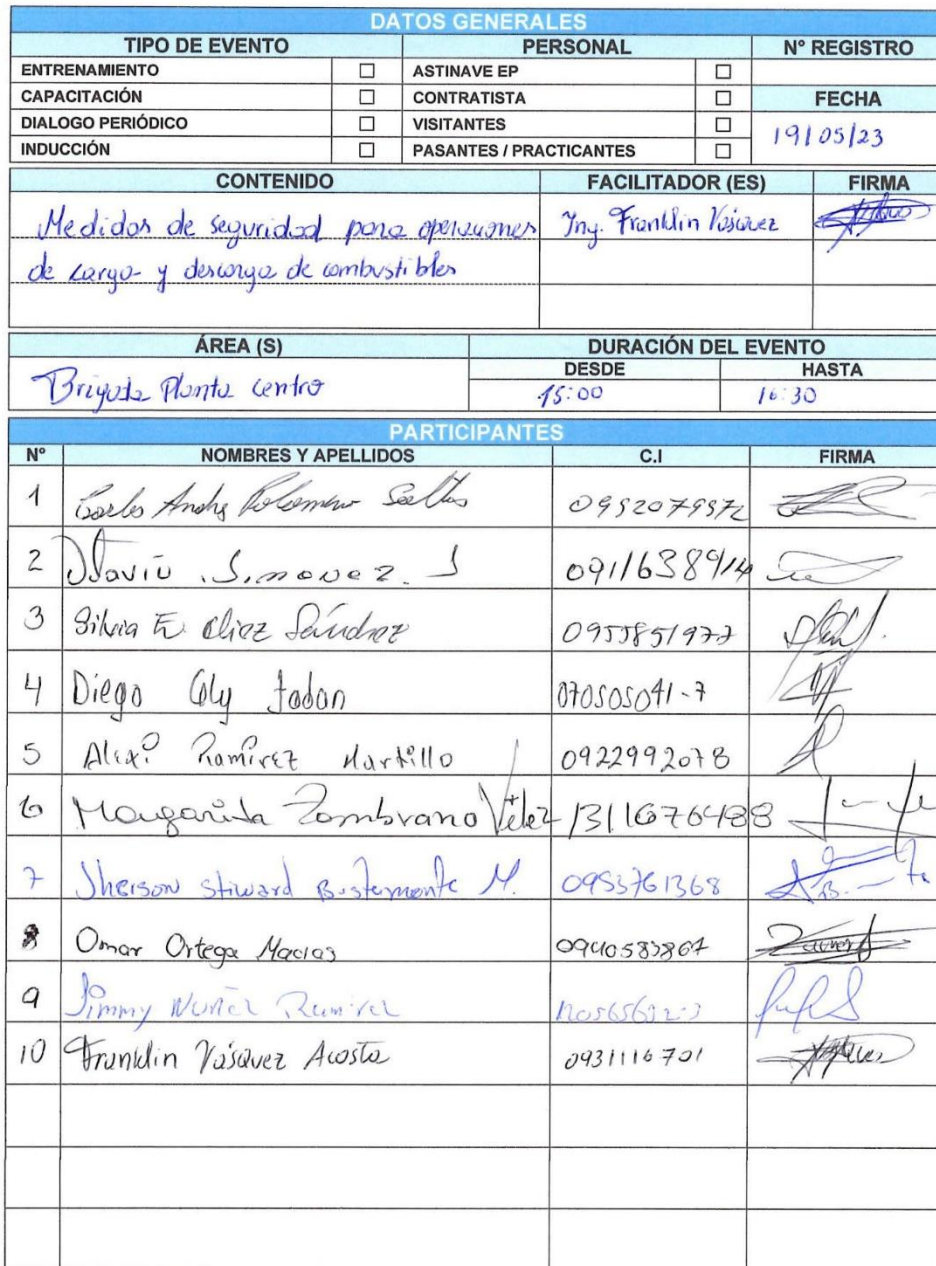 DATOS GENERALES
TIPO DE EVENTO PERSONAL N° REGISTRO
ENTRENAMIENTO ☐ ASTINAVE EP ☐
CAPACITACIÓN ☐ CONTRATISTA ☐ FECHA
DIALOGO PERIÓDICO ☐ VISITANTES ☐ 19/05/23
INDUCCIÓN ☐ PASANTES / PRACTICANTES ☐
CONTENIDO FACILITADOR (ES) FIRMA
Medidas de seguridad para operaciones Ing. Franklin Vásquez
de carga y descarga de combustibles
ÁREA (S) DURACIÓN DEL EVENTO
DESDE HASTA
Brigada Planta centro 15:00 16:30
PARTICIPANTES
N° NOMBRES Y APELLIDOS C.I FIRMA
1 Carlos Andre
2 0911638914
3 Silvia E. Sánchez 0955851977
4 Diego 070505041-7
5 Ramirez Martillo 0922992078
6 Margarita Zambrano Vélez 1311676488
7 Jherson Stiward Bustamante M. 0953761368
8 Omar Ortega Macias 0940583867
9 Jimmy Nuñez Ramirez
10 Franklin Vásquez Acosta 0931116701